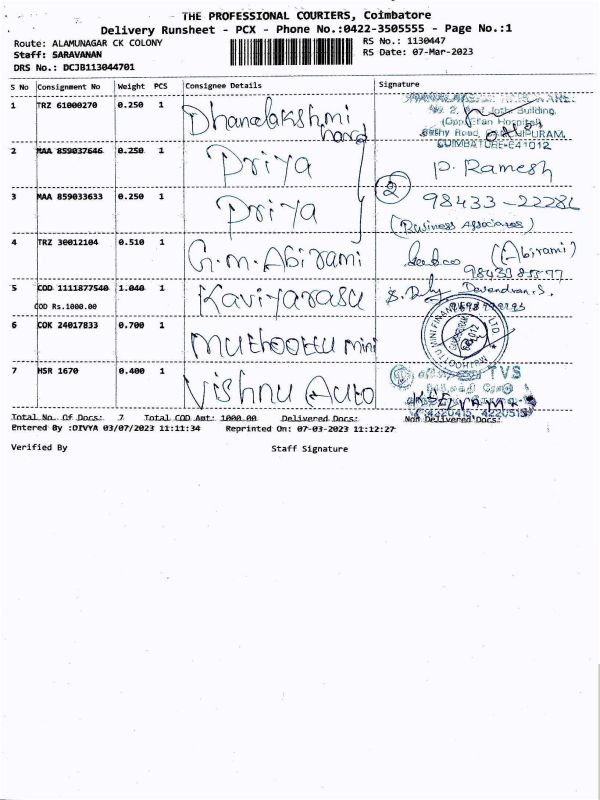 THE PROFESSIONAL COURIERS, Coimbatore
Delivery Runsheet - PCX - Phone No.:0422-3505555 - Page No.:1
Route: ALAMUNAGAR CK COLONY
RS No.: 1130447
Staff: SARAVANAN
RS Date: 07-Mar-2023
DRS No.: DCJB113044701
S No Consignment No Weight PCS Consignee Details Signature
1 TRZ 61000270 0.250 1 Dhanalakshmi
2 MAA 859037646 0.250 1 Priya P. Ramesh
3 MAA 859033633 0.250 1 Priya 2
(Business Associates)
4 TRZ 30012104 0.510 1 G.M. Abirami (Abirami)
5 COD 1111877540 1.040 1 Kaviyarasu Devendran.S.
COD Rs.1000.00
6 COK 24017833 0.700 1 Muthoottu mini
7 HSR 1670 0.400 1 Vishnu Auto TVS
Total No. Of Docs: 7 Total COD Amt: 1000.00 Delivered Docs: Non Delivered Docs:
Entered By :DIVYA 03/07/2023 11:11:34 Reprinted On: 07-03-2023 11:12:27
Verified By Staff Signature